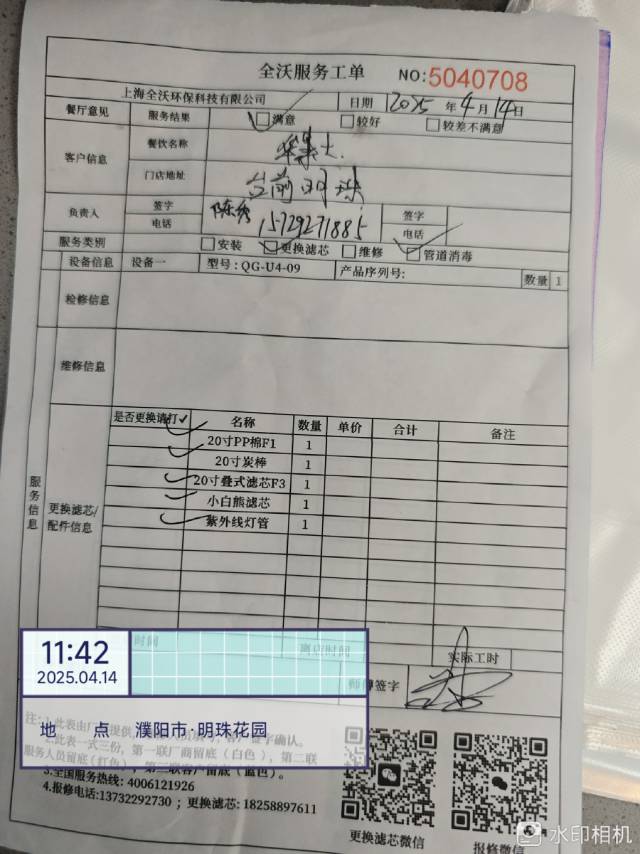 全沃服务工单 NO:5040708
上海全沃环保科技有限公司 日期 2025 年 4 月 14 日
餐厅意见 服务结果 满意 较好 较差不满意
客户信息 餐饮名称
门店地址 台前明珠
负责人 签字 陈秀 签字
电话 15729271885 电话
服务类别 安装 更换滤芯 维修 管道消毒
设备信息 设备一 型号：QG-U4-09 产品序列号: 数量 1
检修信息
维修信息
服务信息
更换滤芯/配件信息
是否更换请打✓ 名称 数量 单价 合计 备注
20寸PP棉F1 1
20寸炭棒 1
20寸叠式滤芯F3 1
小白熊滤芯 1
紫外线灯管 1
时间 离店时间 实际工时
师傅签字
11:42
2025.04.14
地 点 濮阳市·明珠花园
2.此表一式三份，第一联厂商留底（白色），第二联
服务人员留底(红色)，第三联客户留底（蓝色）。
3.全国服务热线: 4006121926
4.报修电话:13732292730；更换滤芯: 18258897611
更换滤芯微信 报修微信
水印相机